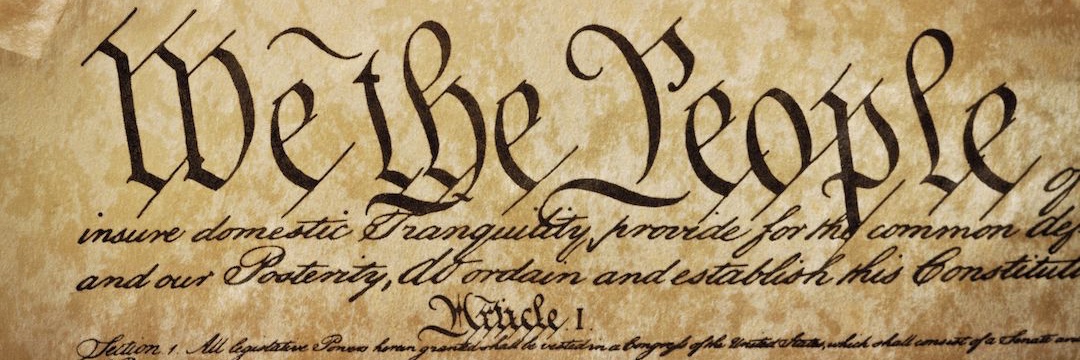 We the People of
insure domestic Tranquility, provide for the common def
and our Posterity, do ordain and establish this Constituti
Article. I.
Section. 1. All legislative Powers herein granted shall be vested in a Congress of the United States, which shall consist of a Senate and